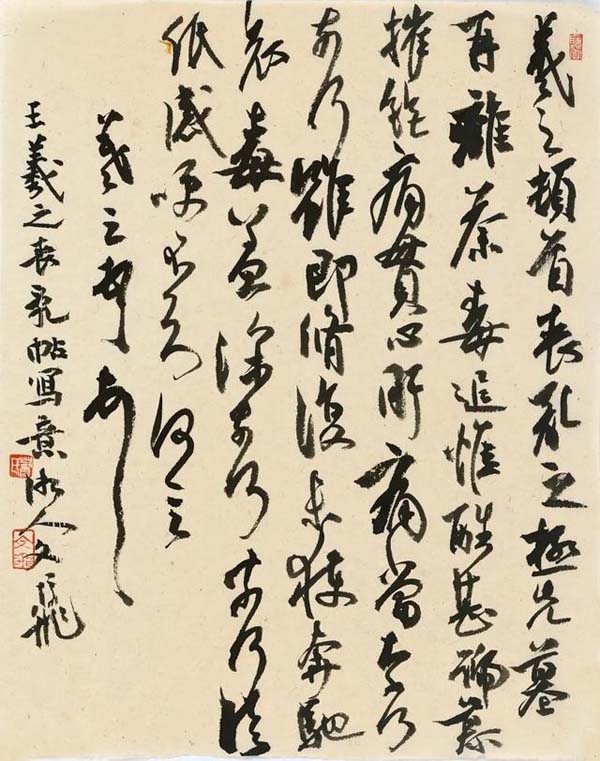 羲之頓首喪亂之極先墓
再離荼毒追惟酷甚號慕
摧絕痛貫心肝痛當奈何
奈何雖即脩復未獲奔馳
哀毒益深奈何奈何臨
紙感哽不知何言
羲之頓首頓首
王羲之喪亂帖寫意湘人文飛